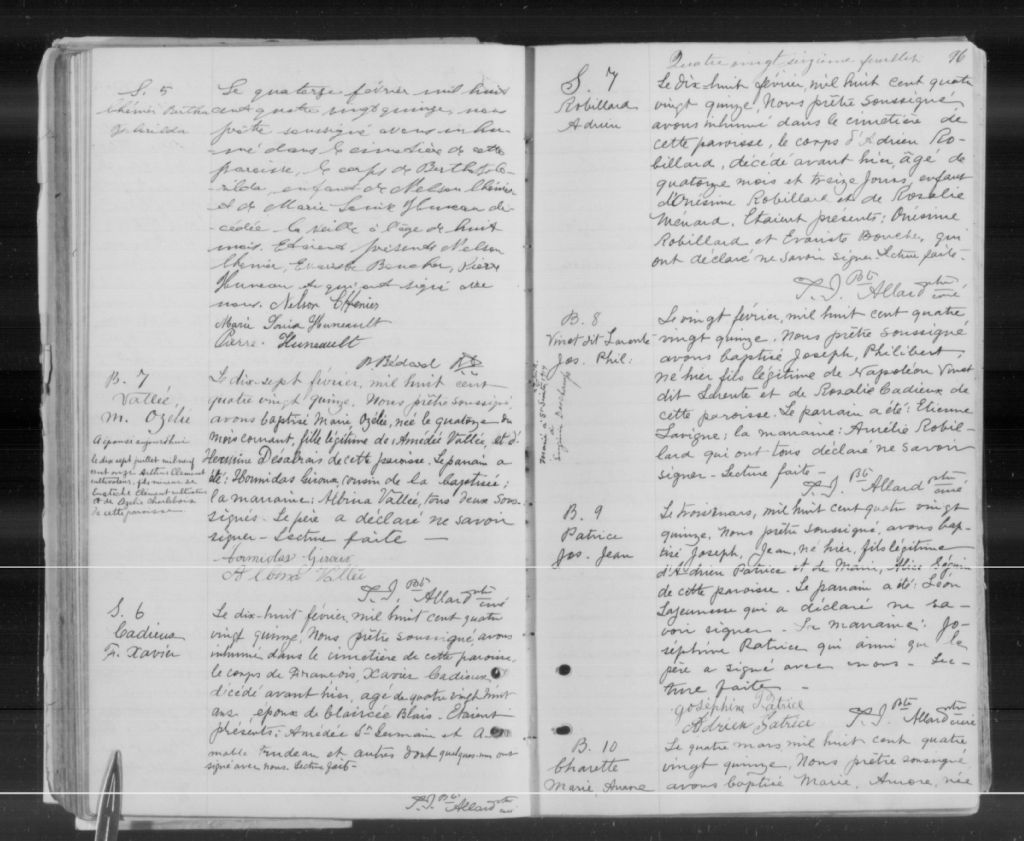 S. 5
Chénier Bertha
Le quatorze février mil huit
cent quatre vingt quinze, nous
prêtre soussigné avons inhu-
mé dans le cimetière de cette
paroisse, le corps de
enfant de Nelson Chénier
et de Marie Huneau dé-
cédée la veille à l'âge de huit
mois. Etaient présents Nelson
Chenier, Evariste Boucher, Pierre
Huneau qui ont signé avec
nous. Nelson Chénier
Marie Huneault
Pierre Huneault
Bédard
B. 7
Vallée,
M. Ozélie
A épousé aujourd'hui
le dix sept juillet mil neuf
cent onze Arthur Clement
cultivateur, fils mineur de
Eustache Clement cultivateur
et de Charlebois
de cette paroisse
Le dix-sept février, mil huit cent
quatre vingt quinze. Nous prêtre soussigné,
avons baptisé Marie Ozélie, née le quatorze du
mois courant, fille légitime de Amédée Vallée, et d'
Hermine Désabrais de cette paroisse. Le parrain a
été: Hormidas Giroux, cousin de la baptisée;
la marraine: Albina Vallée, tous deux sous-
signés - Le père a déclaré ne savoir
signer - Lecture faite —
Hormidas Giroux
Albina Vallée
T. J. Bte Allard ptre curé
S. 6
Cadieux
F. Xavier
Le dix-huit février, mil huit cent quatre
vingt quinze, Nous prêtre soussigné avons
inhumé dans le cimetière de cette paroisse,
le corps de François, Xavier Cadieux
décédé avant hier, agé de quatre vingt huit
ans époux de Blais - Etaient
présents: Amédée St Germain et A-
mable Trudeau et autres dont quelques-uns ont
signé avec nous. Lecture faite -
T. J. Bte Allard ptre curé
Quatre vingt seizième feuillet 96
S. 7
Robillard
Adrien
Le dix-huit février, mil huit cent quatre
vingt quinze, Nous prêtre soussigné
avons inhumé dans le cimetière de
cette paroisse, le corps d'Adrien Ro-
billard, décédé avant hier âgé de
quatorze mois et treize jours, enfant
d'Onésime Robillard et de Rosalie
Ménard. Etaient présents: Onésime
Robillard et Evariste Boucher, qui
ont déclaré ne savoir signer. Lecture faite -
T. J. Bte Allard ptre curé
B. 8
Vinet dit Larente
Jos. Phil:
Le vingt février, mil huit cent quatre
vingt quinze, Nous prêtre soussigné
avons baptisé Joseph, Philibert,
né hier fils légitime de Napoléon Vinet
dit Larente et de Rosalie Cadieux de
cette paroisse. Le parrain a été: Etienne
Lavigne; la marraine: Amélie Robil-
lard qui ont tous déclaré ne savoir
signer - Lecture faite -
T. J. Bte Allard ptre curé
B. 9
Patrice
Jos. Jean
Le trois mars, mil huit cent quatre vingt
quinze, Nous prêtre soussigné, avons bap-
tisé Joseph, Jean, né hier, fils légitime
d'Adrien Patrice et de Marie, Alice Séguin
de cette paroisse. Le parrain a été: Léon
Lajeunesse qui a déclaré ne sa-
voir signer - La marraine: Jo-
séphine Patrice qui ainsi que le
père a signé avec nous - Lec-
ture faite -
Joséphine Patrice
Adrien Patrice
T. J. Bte Allard ptre curé
B. 10
Charette
Marie,
Le quatre mars mil huit cent quatre
vingt quinze, Nous prêtre soussigné
avons baptisé Marie, née